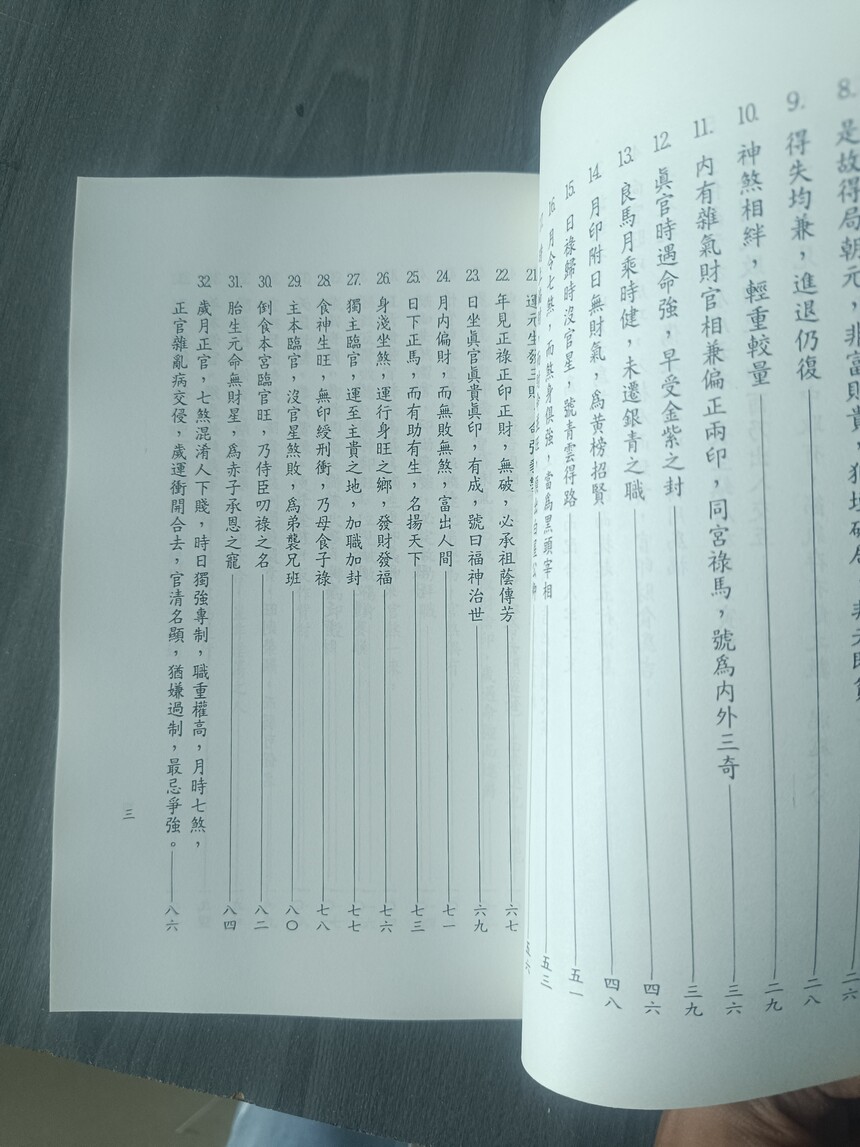 8. 是故得局朝元，非富則貴，
9. 得失均兼，進退仍復 二八
10. 神煞相絆，輕重較量 二九
11. 內有雜氣財官相兼偏正兩印，同宮祿馬，號爲內外三奇 三六
12. 眞官時遇命強，早受金紫之封 三九
13. 良馬月乘時健，未遷銀青之職 四六
14. 月印附日無財氣，爲黃榜招賢 四八
15. 日祿歸時沒官星，號青雲得路 五一
16. 月令七煞，而煞身俱強，當爲黑頭宰相 五三
21.
22. 年見正祿正印正財，無破，必承祖蔭傳芳 六七
23. 日坐眞官眞貴眞印，有成，號曰福神治世 六九
24. 月內偏財，而無敗無煞，富出人間 七一
25. 日下正馬，而有助有生，名揚天下 七三
26. 身淺坐煞，運行身旺之鄉，發財發福 七六
27. 獨主臨官，運至主貴之地，加職加封 七七
28. 食神生旺，無印綬刑衝，乃母食子祿 七八
29. 主本臨官，沒官星煞敗，爲弟襲兄班 八〇
30. 倒食本宮臨官旺，乃侍臣叨祿之名 八二
31. 胎生元命無財星，爲赤子承恩之寵 八四
32. 歲月正官，七煞混淆人下賤，時日獨強專制，職重權高，月時七煞，
正官雜亂病交侵，歲運衝開合去，官清名顯，猶嫌過制，最忌爭強。 八六
三